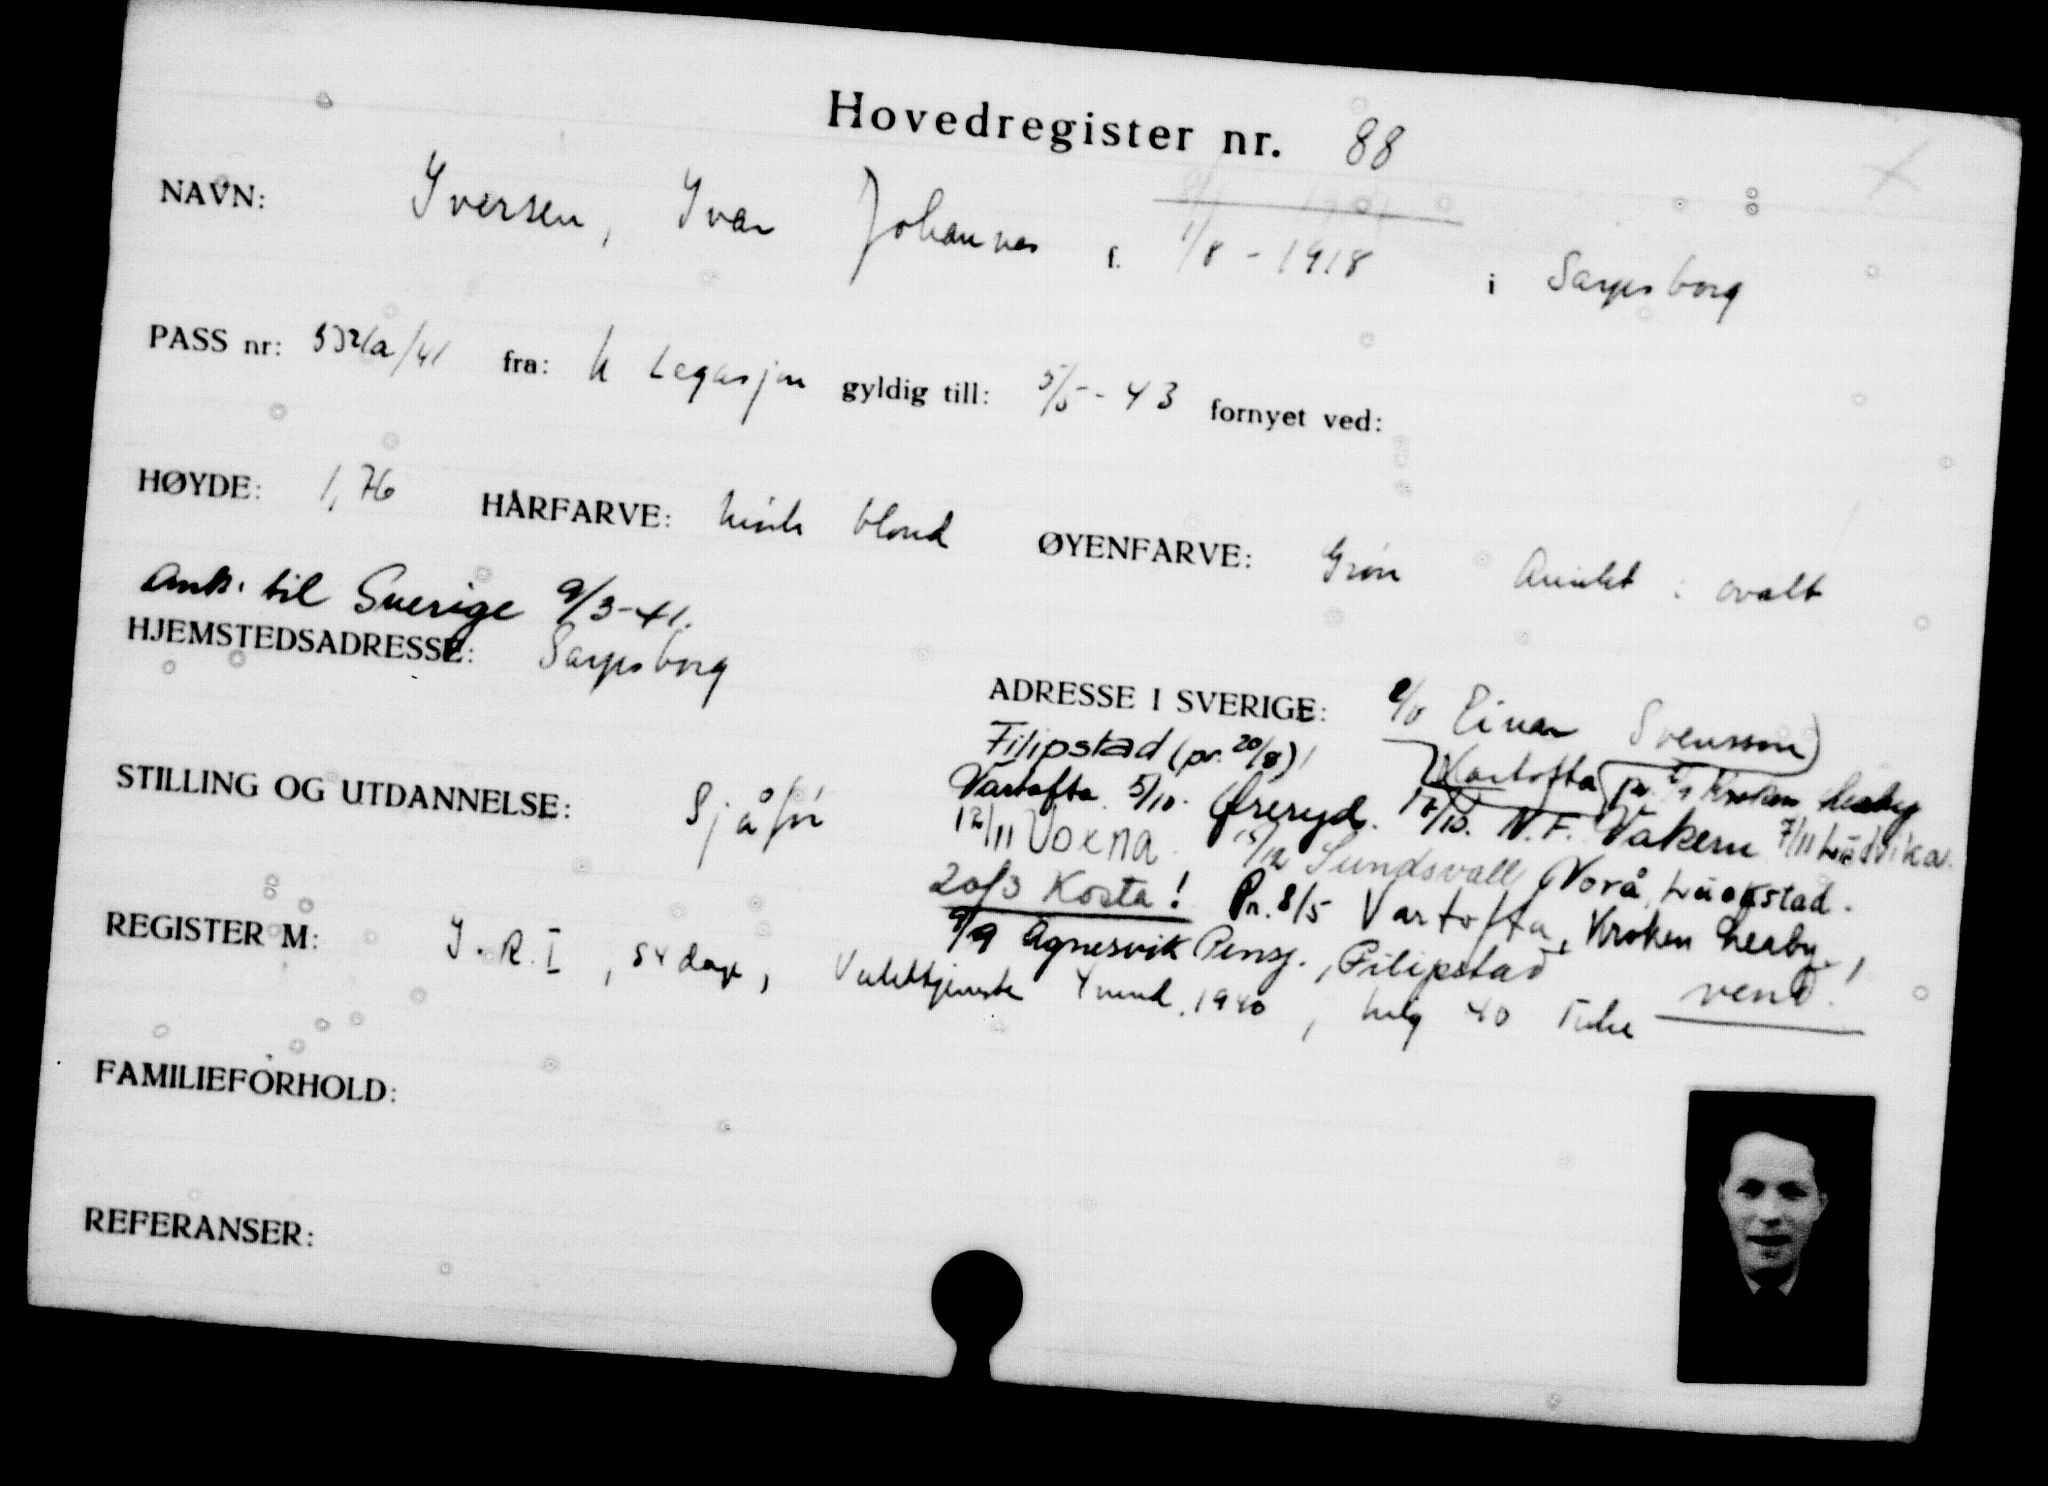 Hovedregister nr. 88
NAVN: Iversen, Ivar Johannes f. 1/8 - 1918 i Sarpsborg
PASS nr: fra: Legasjon gyldig till: 5/5 - 43 fornyet ved:
HØYDE: 1,76 HÅRFARVE: blond ØYENFARVE: Grøn Ansikt : ovalt
Ank. til Sverige 9/3-41.
HJEMSTEDSADRESSE: Sarpsborg
ADRESSE I SVERIGE: c/o Einar Svensson
Filipstad (pr. 20/8) Vartofta pr. Kroken Leaby
Vartofta 5/10. Øreryd. 10/10. N.F. Vakern 7/11 Ludvika.
12/11 Voxna. 15/12 Sundsvall Norå,
20/3 Kosta! Pr. 8/5 Vartofta, Kroken Leaby,
9/9 Agnesvik Pensj., Filipstad vend!
STILLING OG UTDANNELSE: Sjåfør
REGISTER M: I.R.I, 54 dag, 4 mnd. 1940,
FAMILIEFORHOLD:
REFERANSER: